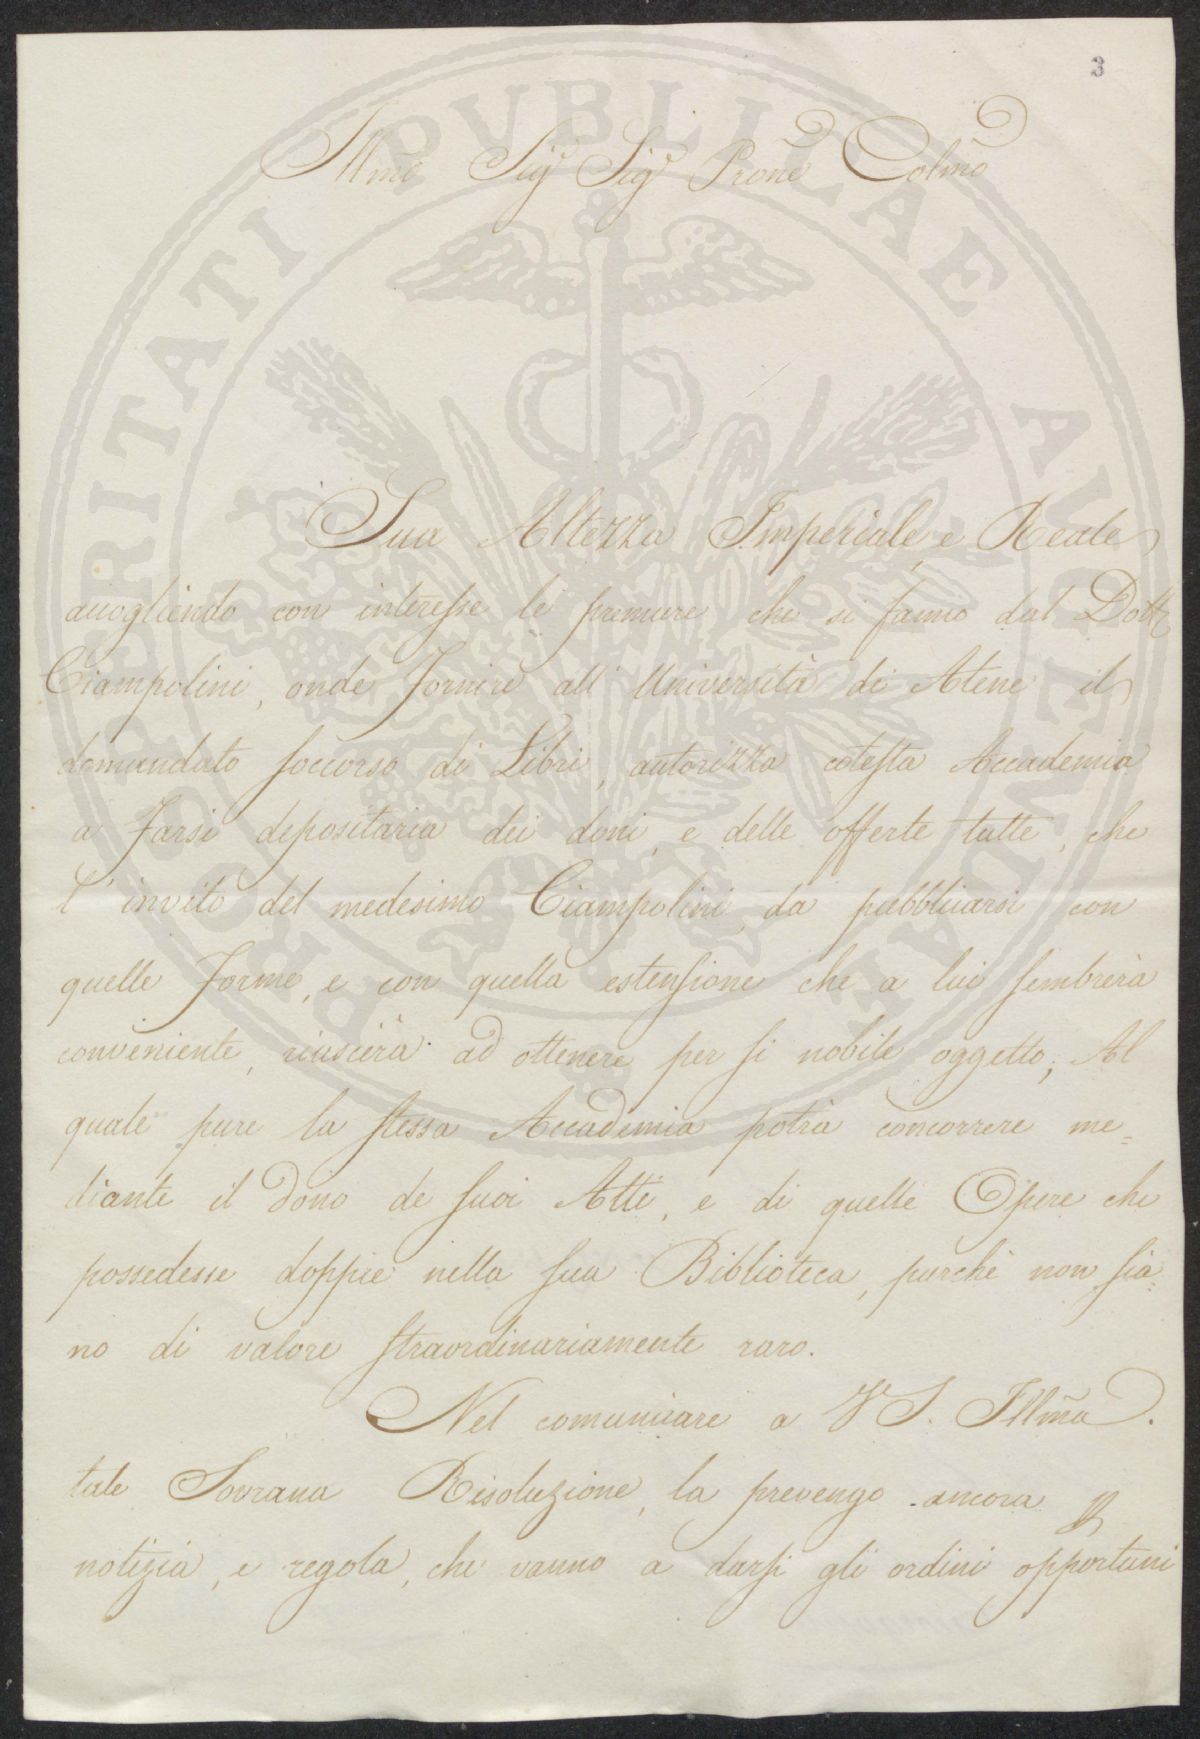 3
Illmo Sigr Sigr Prone Colmo
Sua Altezza Imperiale e Reale
accogliendo con interesse le premure che si fanno dal Dottr
Ciampolini, onde fornire all' Università di Atene il
domandato soccorso di Libri, autorizza cotesta Accademia
a farsi depositaria dei doni, e delle offerte tutte, che
l' invito del medesimo Ciampolini, da pubblicarsi con
quelle forme, e con quella estensione che a lui sembrerà
conveniente, riuscirà ad ottenere per si nobile oggetto; Al
quale pure la stessa Accademia potrà concorrere me=
diante il dono de suoi Atti, e di quelle Opere che
possedesse doppie nella sua Biblioteca, purchè non sia=
no di valore straordinariamente raro.
Nel comunicare a V S. Illma.
tale Sovrana Risoluzione, la prevengo ancora p
notizia, e regola, che vanno a darsi gli ordini opportuni
PROSPERITATI PVBLICAE AVGENDAE